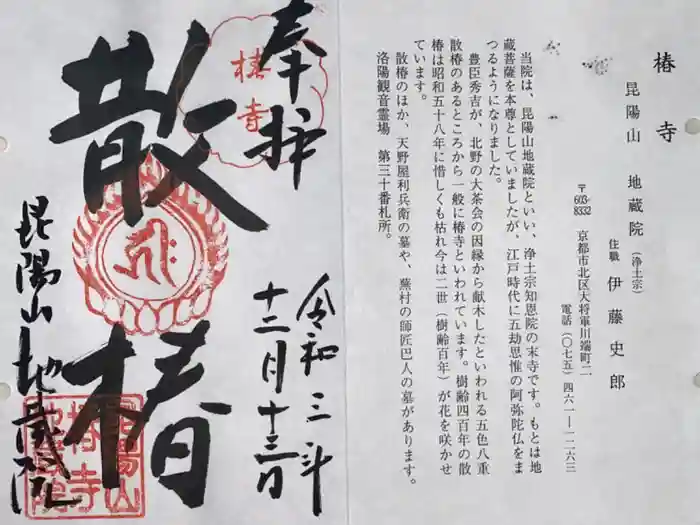 椿寺
昆陽山 地蔵院 (浄土宗)
住職 伊藤史郎
〒603-8332 京都市北区大将軍川端町二
電話(〇七五)四六一―一二六三
当院は、昆陽山地蔵院といい、浄土宗知恩院の末寺です。もとは地
蔵菩薩を本尊としていましたが、江戸時代に五劫思惟の阿弥陀仏をま
つるようになりました。
豊臣秀吉が、北野の大茶会の因縁から献木したといわれる五色八重
散椿のあるところから一般に椿寺といわれています。樹齢四百年の散
椿は昭和五十八年に惜しくも枯れ今は二世(樹齢百年)が花を咲かせ
ています。
散椿のほか、天野屋利兵衛の墓や、蕪村の師匠巴人の墓があります。
洛陽観音霊場 第三十番札所。
奉拝
椿寺
令和三年
十二月十三日
散椿
昆陽山地蔵院
昆陽山
椿寺
地蔵院